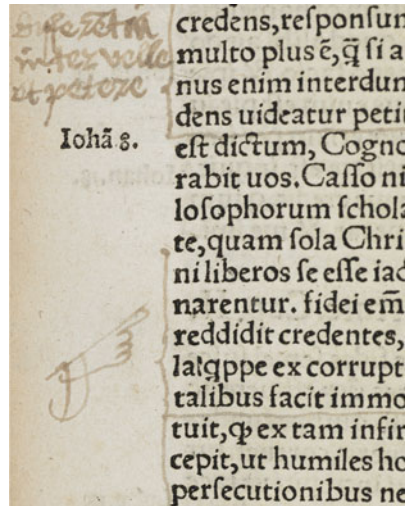 differētia
inter velle
et petere
Iohā 8.
credens, responsum
multo plus ē, q̄ si a
nus enim interdum
dens uideatur peti
est dictum, Cogno
rabit uos. Casso ni
losophorum schola
te, quam sola Chri
ni liberos se esse iac
narentur. fidei em̄
reddidit credentes,
la: qppe ex corrupt
talibus facit immo
tuit, ꝙ ex tam infir
cepit, ut humiles ho
persecutionibus ne